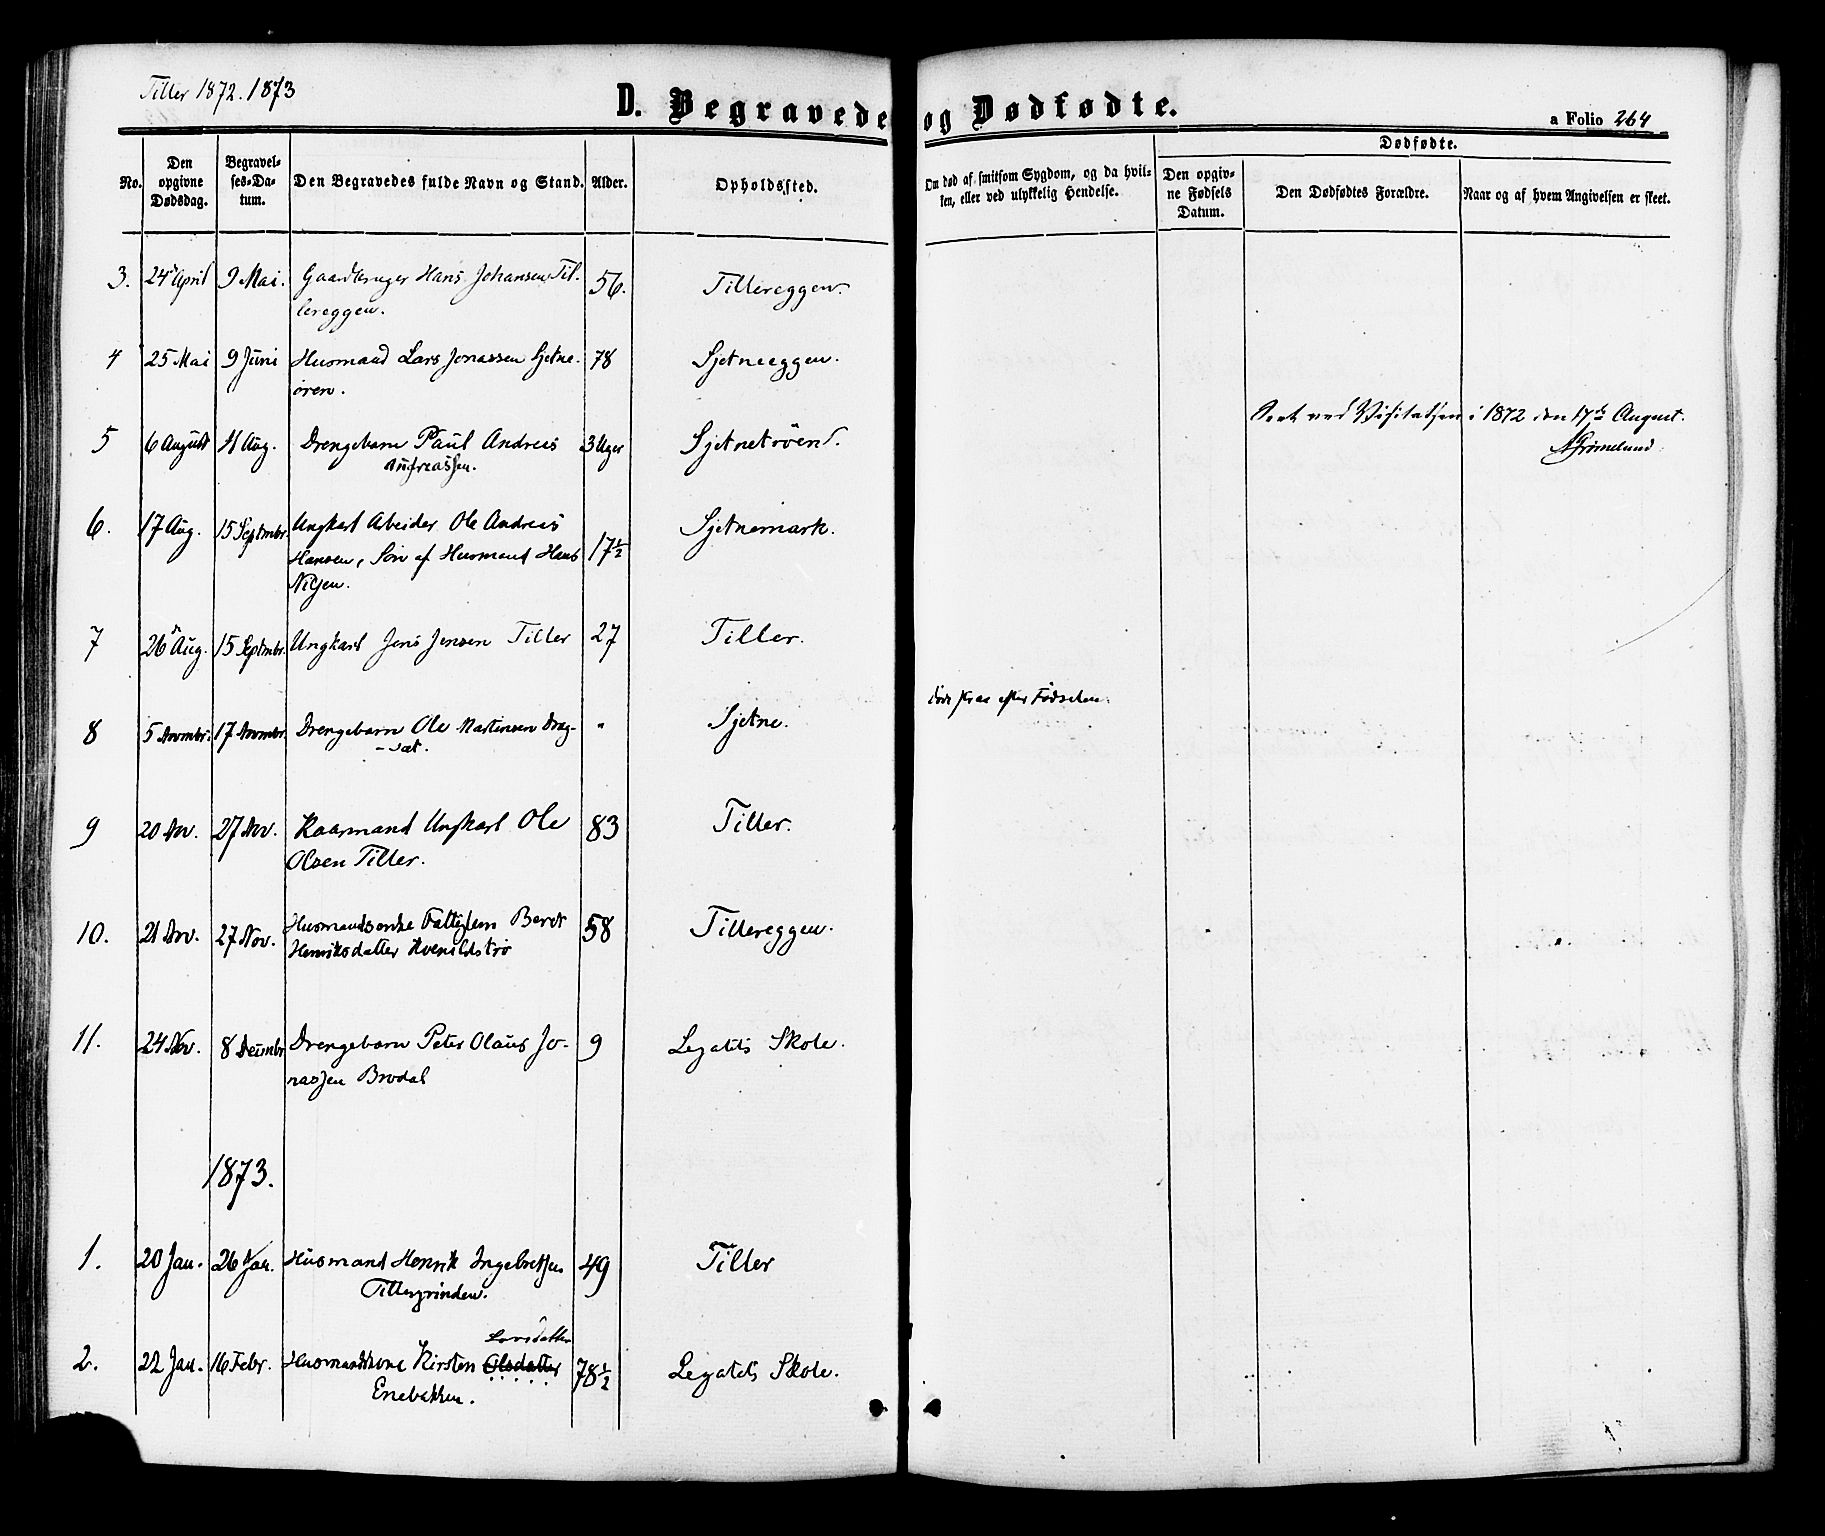 Tiller 1872. 1873
D. Begravede og Dødfødte.
a Folio 264
No.
Den opgivne Dødsdag.
Begravelses-Datum.
Den Begravedes fulde Navn og Stand.
Alder.
Opholdssted.
Om død af smitsom Sygdom, og da hvilken, eller ved ulykkelig Hendelse.
Dødfødte.
Den opgivne Fødsels Datum.
Den Dødfødtes Forældre.
Naar og af hvem Angivelsen er skeet.
3. 24 April 9 Mai. Gaardbruger Hans Johansen Til- 56. Tillereggen.
lereggen.
4 25 Mai 9 Juni Husmand Lars Jonassen Sjetne- 78 Sjetneeggen.
ören.
Seet ved Visitatsen i 1872 den 17de August.
Grimelund
5 6 August 11 Aug. Drengebarn Paul Andreas 3 Uger Sjetnetröen.
Andreassen.
6. 17 Aug. 15 Septmbr. Ungkarl Arbeider Ole Andreas Sjetnemark.
Hansen, Sön af Husmand Hans 17½
Nilsen.
7 26 Aug. 15 Septmbr. Ungkarl Jens Jensen Tiller 27 Tiller.
8 5 Novmbr. 17 Novmbr. Drengebarn Ole Martinsen Drag- " Sjetne. döde strax efter Födselen.
-sæt.
9 20 Nov. 27 Nov. Kaarmand Ungkarl Ole 83 Tiller.
Olsen Tiller.
10. 21 Nov. 27 Nov. Husmandsenke Fattiglem Beret 58 Tillereggen.
Henriksdatter Kvenildströ
11. 24 Nov. 8 Decmbr Drengebarn Peter Olaus Jo- 9 Legatets Skole.
nassen Brodal
1873.
1. 20 Jan. 26 Jan. Husmand Henrik Ingebretsen 49 Tiller
Tillergrinden.
Larsdatter
2. 22 Jan. 16 Febr. Husmandskone Kirsten Olsdatter 78½ Legatets Skole.
Enebakken.